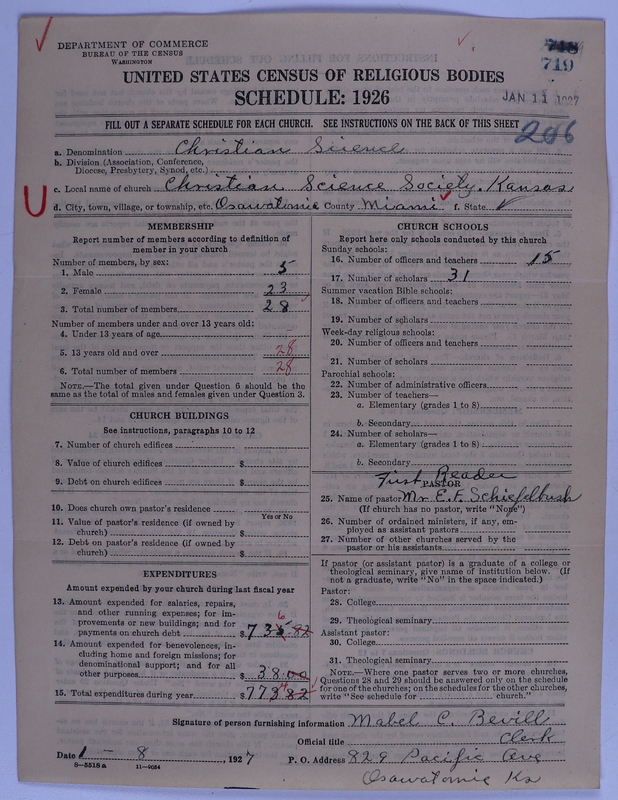 DEPARTMENT OF COMMERCE
BUREAU OF THE CENSUS
WASHINGTON
718
719
UNITED STATES CENSUS OF RELIGIOUS BODIES
SCHEDULE: 1926
JAN 11 1927
FILL OUT A SEPARATE SCHEDULE FOR EACH CHURCH. SEE INSTRUCTIONS ON THE BACK OF THIS SHEET
206
a. Denomination Christian Science
b. Division (Association, Conference, Diocese, Presbytery, Synod, etc.)
c. Local name of church Christian Science Society, Kansas
d. City, town, village, or township, etc. Osawatomie County Miami f. State
U
MEMBERSHIP
Report number of members according to definition of
member in your church
Number of members, by sex:
1. Male 5
2. Female 23
3. Total number of members 28
Number of members under and over 13 years old:
4. Under 13 years of age
5. 13 years old and over 28
6. Total number of members 28
NOTE.—The total given under Question 6 should be the
same as the total of males and females given under Question 3.
CHURCH BUILDINGS
See instructions, paragraphs 10 to 12
7. Number of church edifices
8. Value of church edifices $
9. Debt on church edifices $
10. Does church own pastor's residence
Yes or No
11. Value of pastor's residence (if owned by
church) $
12. Debt on pastor's residence (if owned by
church) $
EXPENDITURES
Amount expended by your church during last fiscal year
13. Amount expended for salaries, repairs,
and other running expenses; for im-
provements or new buildings; and for
payments on church debt $ 735.82
6
14. Amount expended for benevolences, in-
cluding home and foreign missions; for
denominational support; and for all
other purposes $ 38.00
15. Total expenditures during year $ 773.82
4
CHURCH SCHOOLS
Report here only schools conducted by this church
Sunday schools:
16. Number of officers and teachers 15
17. Number of scholars 31
Summer vacation Bible schools:
18. Number of officers and teachers
19. Number of scholars
Week-day religious schools:
20. Number of officers and teachers
21. Number of scholars
Parochial schools:
22. Number of administrative officers
23. Number of teachers—
a. Elementary (grades 1 to 8)
b. Secondary
24. Number of scholars—
a. Elementary (grades 1 to 8)
b. Secondary
First Reader
PASTOR
25. Name of pastor Mr E. F. Schiefelbush
(If church has no pastor, write "None")
26. Number of ordained ministers, if any, em-
ployed as assistant pastors
27. Number of other churches served by the
pastor or his assistants
If pastor (or assistant pastor) is a graduate of a college or
theological seminary, give name of institution below. (If
not a graduate, write "No" in the space indicated.)
Pastor:
28. College
29. Theological seminary
Assistant pastor:
30. College
31. Theological seminary
NOTE.—Where one pastor serves two or more churches,
Questions 28 and 29 should be answered only on the schedule
for one of the churches; on the schedules for the other churches,
write "See schedule for church."
Signature of person furnishing information Mabel C. Bevill
Official title Clerk
Date 1 - 8, 1927 P. O. Address 829 Pacific Ave
8—5518a 11—9054
Osawatomie Ks